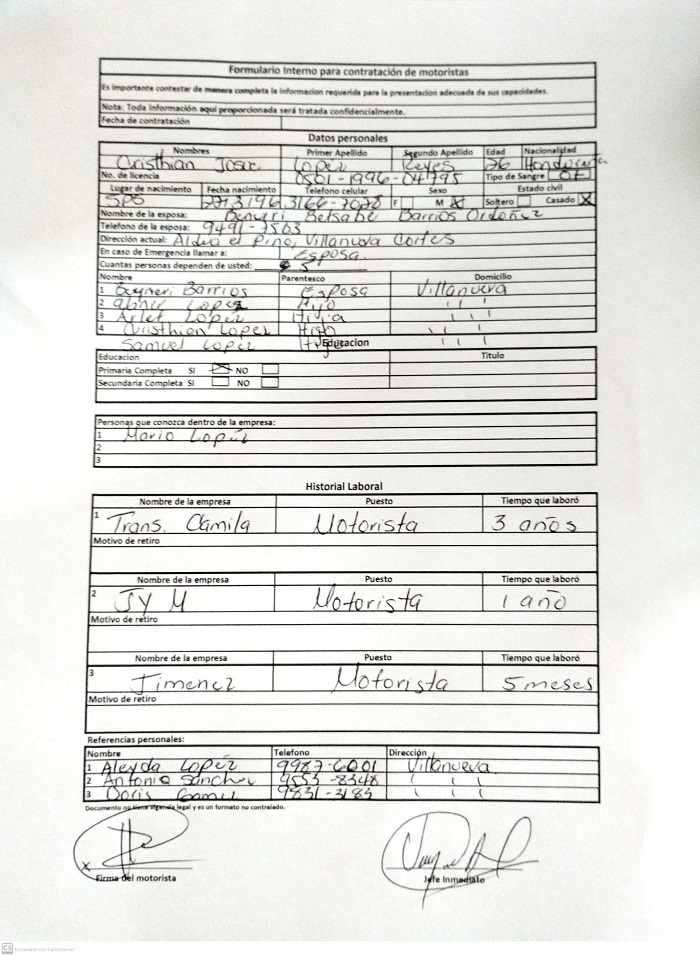 Formulario Interno para contratación de motoristas
Es importante contestar de manera completa la informacion requerida para la presentacion adecuada de sus capacidades.
Nota: Toda información aquí proporcionada será tratada confidencialmente.
Fecha de contratación
Datos personales
Nombres Primer Apellido Segundo Apellido Edad Nacionalidad
Cristhian Josue Lopez Reyes 26 Hondureña
No. de licencia 0501-1996-04795 Tipo de Sangre O+
Lugar de nacimiento Fecha nacimiento Telefono celular Sexo Estado civil
SPS 3166-7078 F M X Soltero Casado X
Nombre de la esposa: Betsabe Barrios Ordoñez
Telefono de la esposa: 9491-7563
Dirección actual: Aldea el Pino, Villanueva Cortes
En caso de Emergencia llamar a: Esposa.
Cuantas personas dependen de usted: 5
Nombre Parentesco Domicilio
1 Barrios Esposa Villanueva
2 Abner Lopez Hijo ı ı ı
3 Arlet Lopez Hija ı ı ı
4 Cristhian Lopez Hijo ı ı ı
Samuel Lopez Hijo ı ı ı
Educacion
Educacion Titulo
Primaria Completa SI X NO
Secundaria Completa SI NO
Personas que conozca dentro de la empresa:
1 Mario Lopez
2
3
Historial Laboral
Nombre de la empresa Puesto Tiempo que laboró
1 Trans. Camila Motorista 3 años
Motivo de retiro
Nombre de la empresa Puesto Tiempo que laboró
2 JY M Motorista 1 año
Motivo de retiro
Nombre de la empresa Puesto Tiempo que laboró
3 Jimenez Motorista 5 meses
Motivo de retiro
Referencias personales:
Nombre Telefono Dirección
1 Aleyda Lopez 9987-6001 Villanueva
2 Antonio Sanchez 9553-8348 ı ı ı
3 Doris 9831-3185 ı ı ı
Documento no tiene vigencia legal y es un formato no contralado.
X
Firma del motorista Jefe Inmediato
CS Escaneado con CamScanner